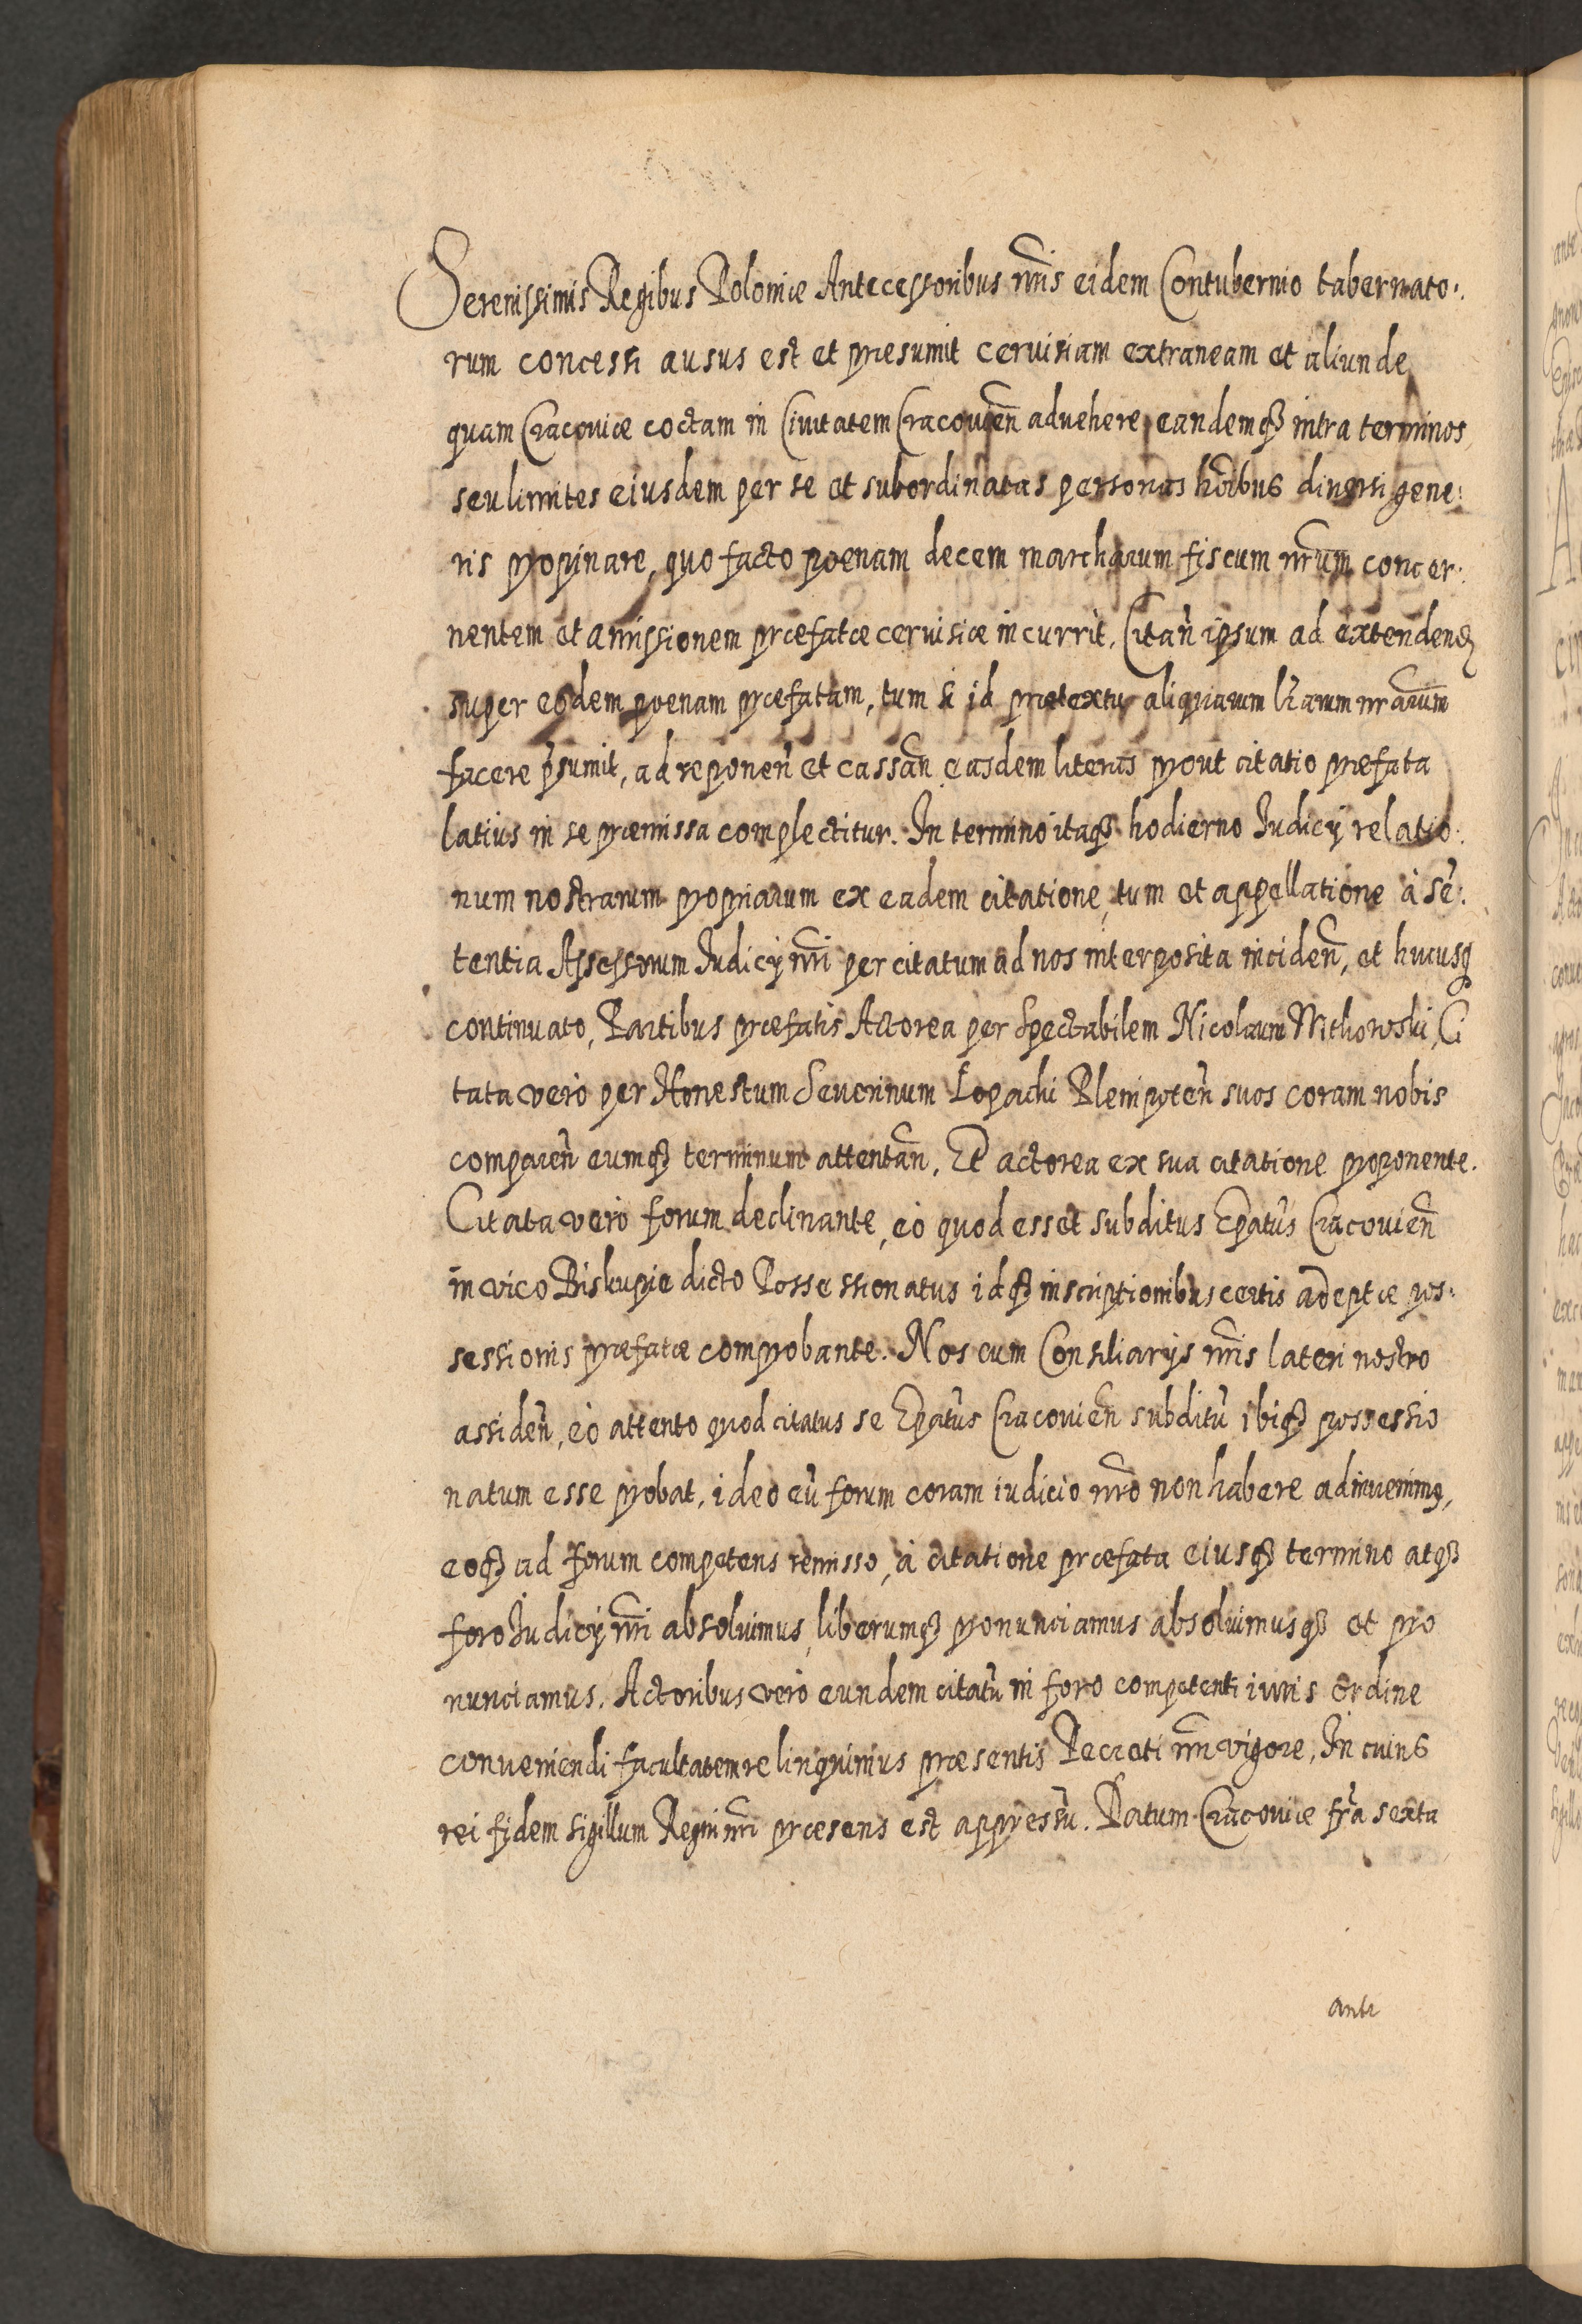 Serenissimis Regibus Poloniæ Antecessoribus nr̃is eidem Contubernio tabernato:
rum concessi ausus est et præsumit cervisiam extraneam et aliunde
quam Cracoviæ coctam in Civitatem Cracovien̄ advehere, eandemqꝫ intra terminos
seu limites eiusdem per se et subordinatas personas hoĩbus diversi gene:
ris propinare, quo facto poenam decem marcharum fiscum nr̃um concer:
nentem et amissionem præfatæ cervisiæ incurrit. Citan̄ ipsum ad extenden̄
super eodem poenam præfatam, tum si id prætextu aliquarum lr̃arum nr̃arum
facere p̃sumit, ad reponen̄ et cassan̄ easdem literas prout citatio præfata
latius in se præmissa complectitur. In termino itaqꝫ hodierno Iudicÿ relatio:
num nostrarum propriarum ex eadem citatione, tum et appellatione à sẽ:
tentia Assessorum Iudicÿ nr̃i per citatum ad nos interposita inciden̄, et hucusqꝫ
continuato, Partibus præfatis Actorea per Spectabilem Nicolaum Withowski, Ci
tata verò per Honestum Severinum Łopachi Plenipoten̄ suos coram nobis
comparen̄ eumqꝫ terminum attentan̄. Et actorea ex sua citatione proponente.
Citata verò forum declinante, eò quod esset subditus Ep̃atus Cracovien̄
in vico Biskupie dicto Possessionatus idqꝫ inscriptionibus certis adeptæ pos:
sessionis præfatæ comprobante. Nos cum Consiliarÿs nr̃is lateri nostro
assiden̄, eò attento quod citatus se Ep̃atus Cracovien̄ subditũ ibiqꝫ possessio
natum esse probat, ideo eũ forum coram iudicio nr̃o non habere adinvenimꝰ,
eoqꝫ ad forum competens remisso, à citatione præfata eiusqꝫ termino atqꝫ
foro Iudicÿ nr̃i absolvimus, liberumqꝫ pronunciamus absolvimusqꝫ et pro
nunciamus. Actoribus verò eundem citatũ in foro competenti iuris ordine
conveniendi facultatem relinquimus præsentis Decreti nr̃i vigore, In cuius
rei fidem sigillum Regni nr̃i præsens est appressũ. Datum Cracoviæ fr̃a sexta
ante